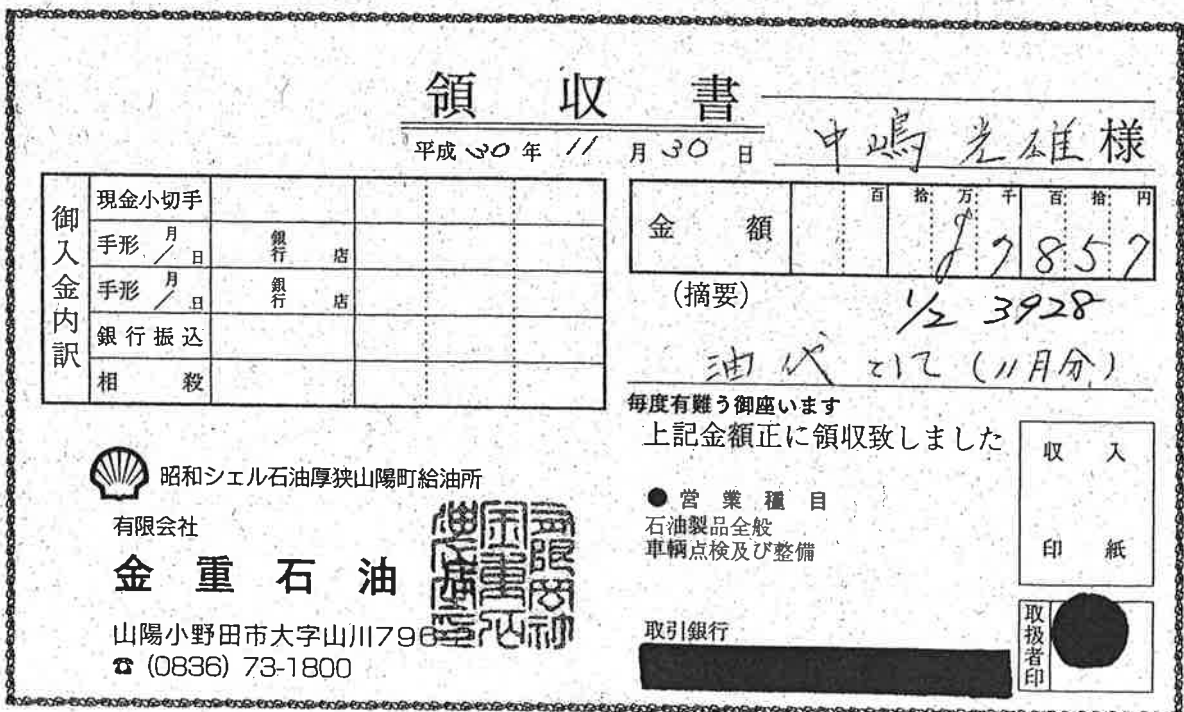 領収書
平成30年11月30日
中嶋光雄様
御入金内訳
現金小切手
手形 月/日 銀行 店
手形 月/日 銀行 店
銀行振込
相殺
金額 百拾万千百拾円
¥7857
(摘要)
1/2 3928
油代として(11月分)
毎度有難う御座います
上記金額正に領収致しました
収入印紙
●営業種目
石油製品全般
車輌点検及び整備
取引銀行
取扱者印
昭和シェル石油厚狭山陽町給油所
有限会社
金重石油
山陽小野田市大字山川796
☎(0836)73-1800